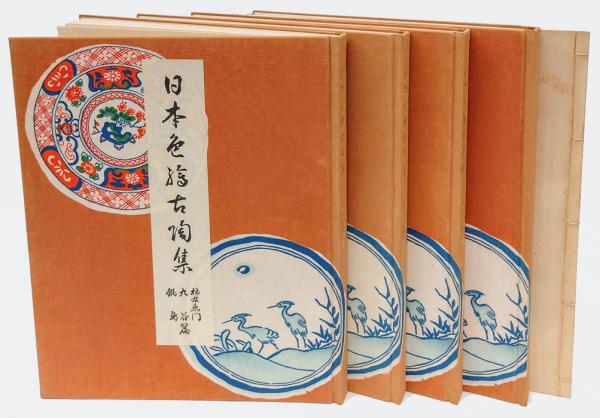 日本色繪古陶集
柿右衛門
九谷篇
鍋島